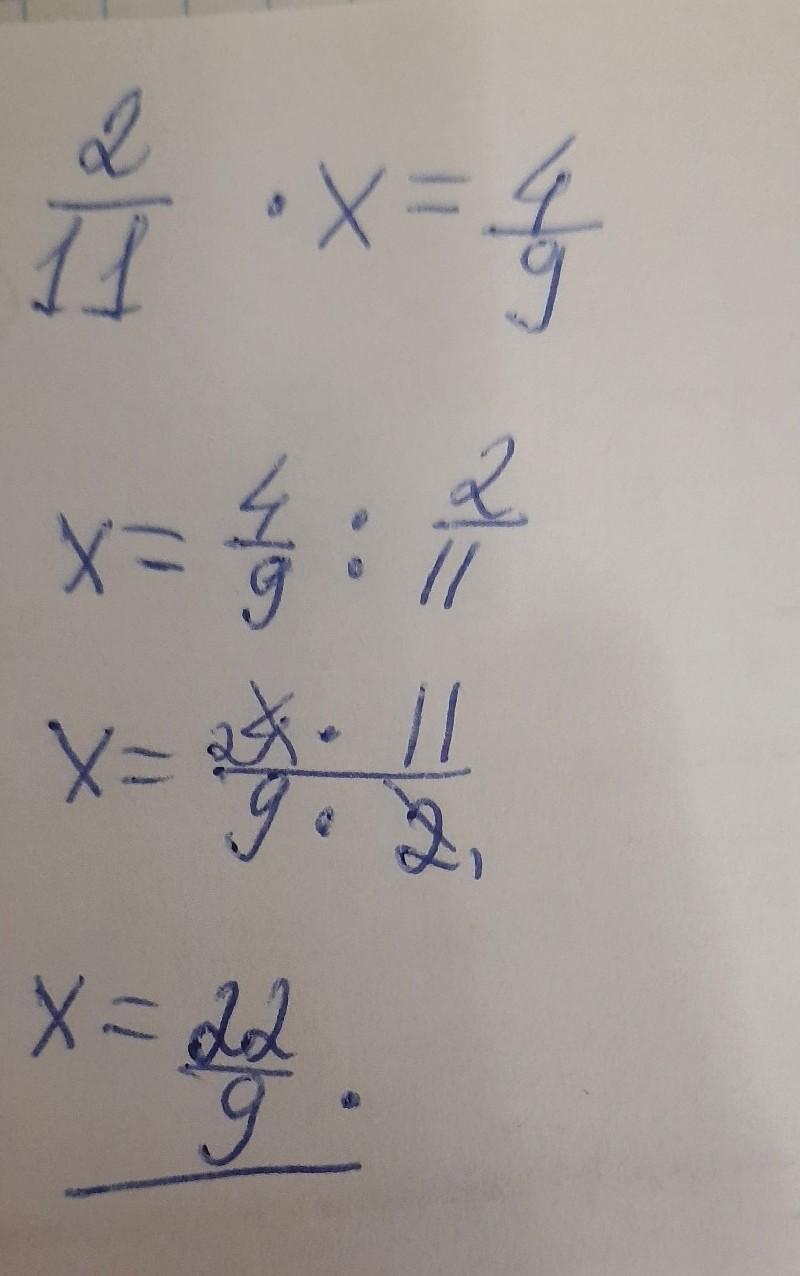 2/11 · x = 4/9
x = 4/9 : 2/11
x = 2 4 · 11 / 9 · 2 1
x = 22/9 .